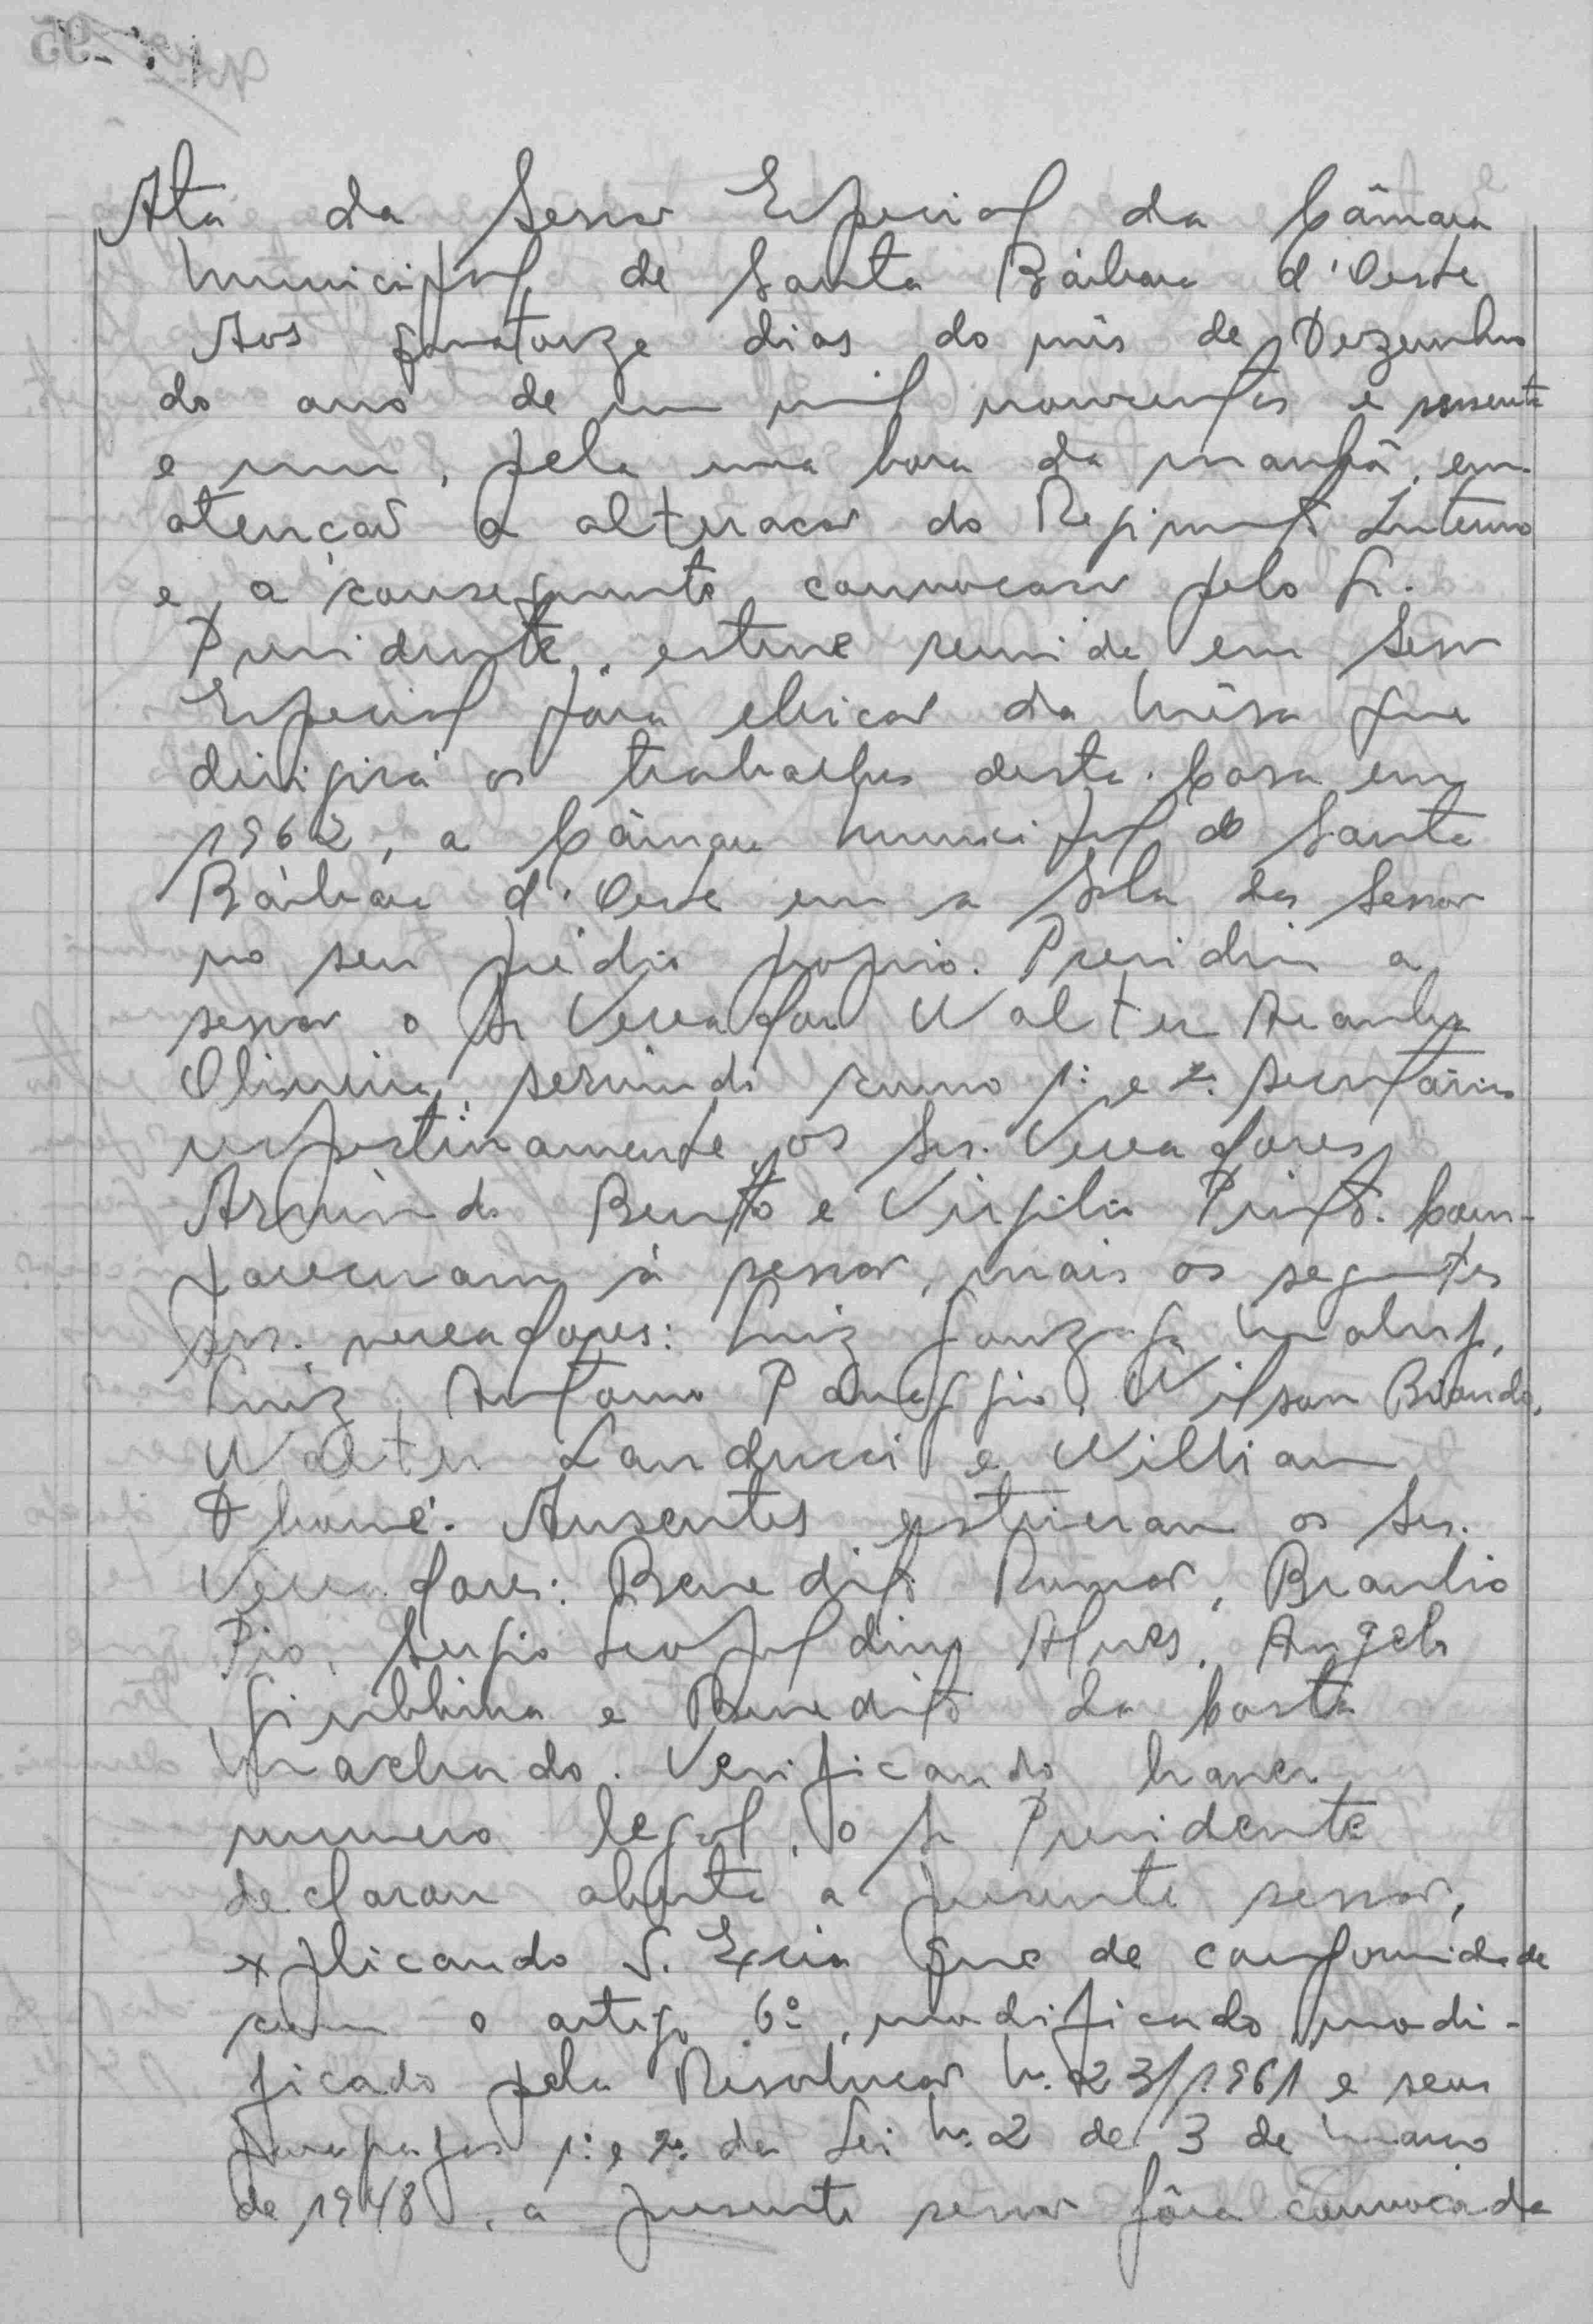 Ata da Sessão Especial da Câmara
Municipal de Santa Bárbara d'Oeste
Aos quatorze dias do mês de Dezembro
do ano de um mil novecentos e sessenta
e um, pela uma hora da manhã, em
atenção a alteração do Regimento Interno
e a consequente convocação pelo Sr.
Presidente, esteve reunida em Sessão
Especial para eleição da Mêsa que
dirigirá os trabalhos desta Casa em
1962, a Câmara Municipal de Santa
Bárbara d'Oeste em a Sala das Sessão
no seu prédio proprio. Presidiu a
sessão o Sr Vereador Walter Aranha
Oliveira, servindo como 1º e 2º secretários
respectivamente os Srs. Vereadores
Armindo Bento e Virgilio Pinto. Com-
pareceram à sessão, mais os seguintes
srs. vereadores: Luiz Gonzaga Maluf,
Luiz Antonio Panaggio, Wilson Briando,
Walter Landucci e Willian
Thomé. Ausentes estiveram os Srs.
Vereadores: Benedito Braulio
Pio, Sergio Leopoldino Alves, Angelo
Giribbina e Benedito da Costa
Machado. Verificando haver
numero legal, o Sr Presidente
declarou aberta a presente sessão,
explicando S. Excia que de conformidade
com o artigo 6º, modificado modi-
ficado pela Resolução N. 23/1961 e seus
paragrafos 1º e 2º da Lei Nº 2 de 3 de Março
de 1948, a presente sessão fôra convocada